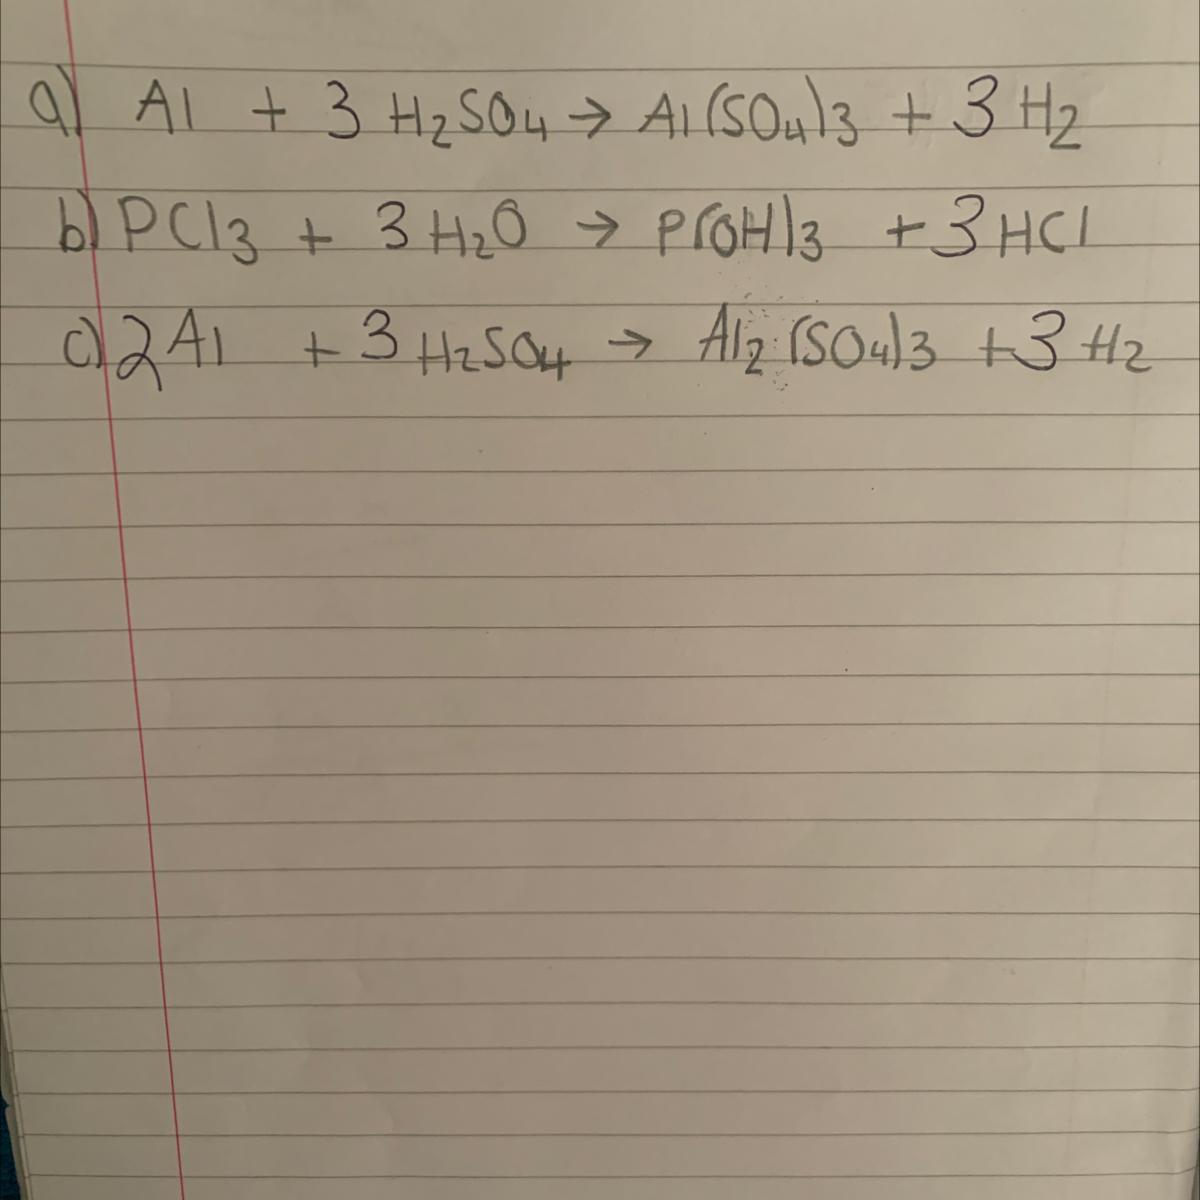 a) Al + 3 H₂SO₄ → Al(SO₄)3 + 3 H₂
b) PCl3 + 3 H₂O → P(OH)3 + 3 HCl
c) 2 Al + 3 H₂SO₄ → Al₂(SO₄)3 + 3 H₂